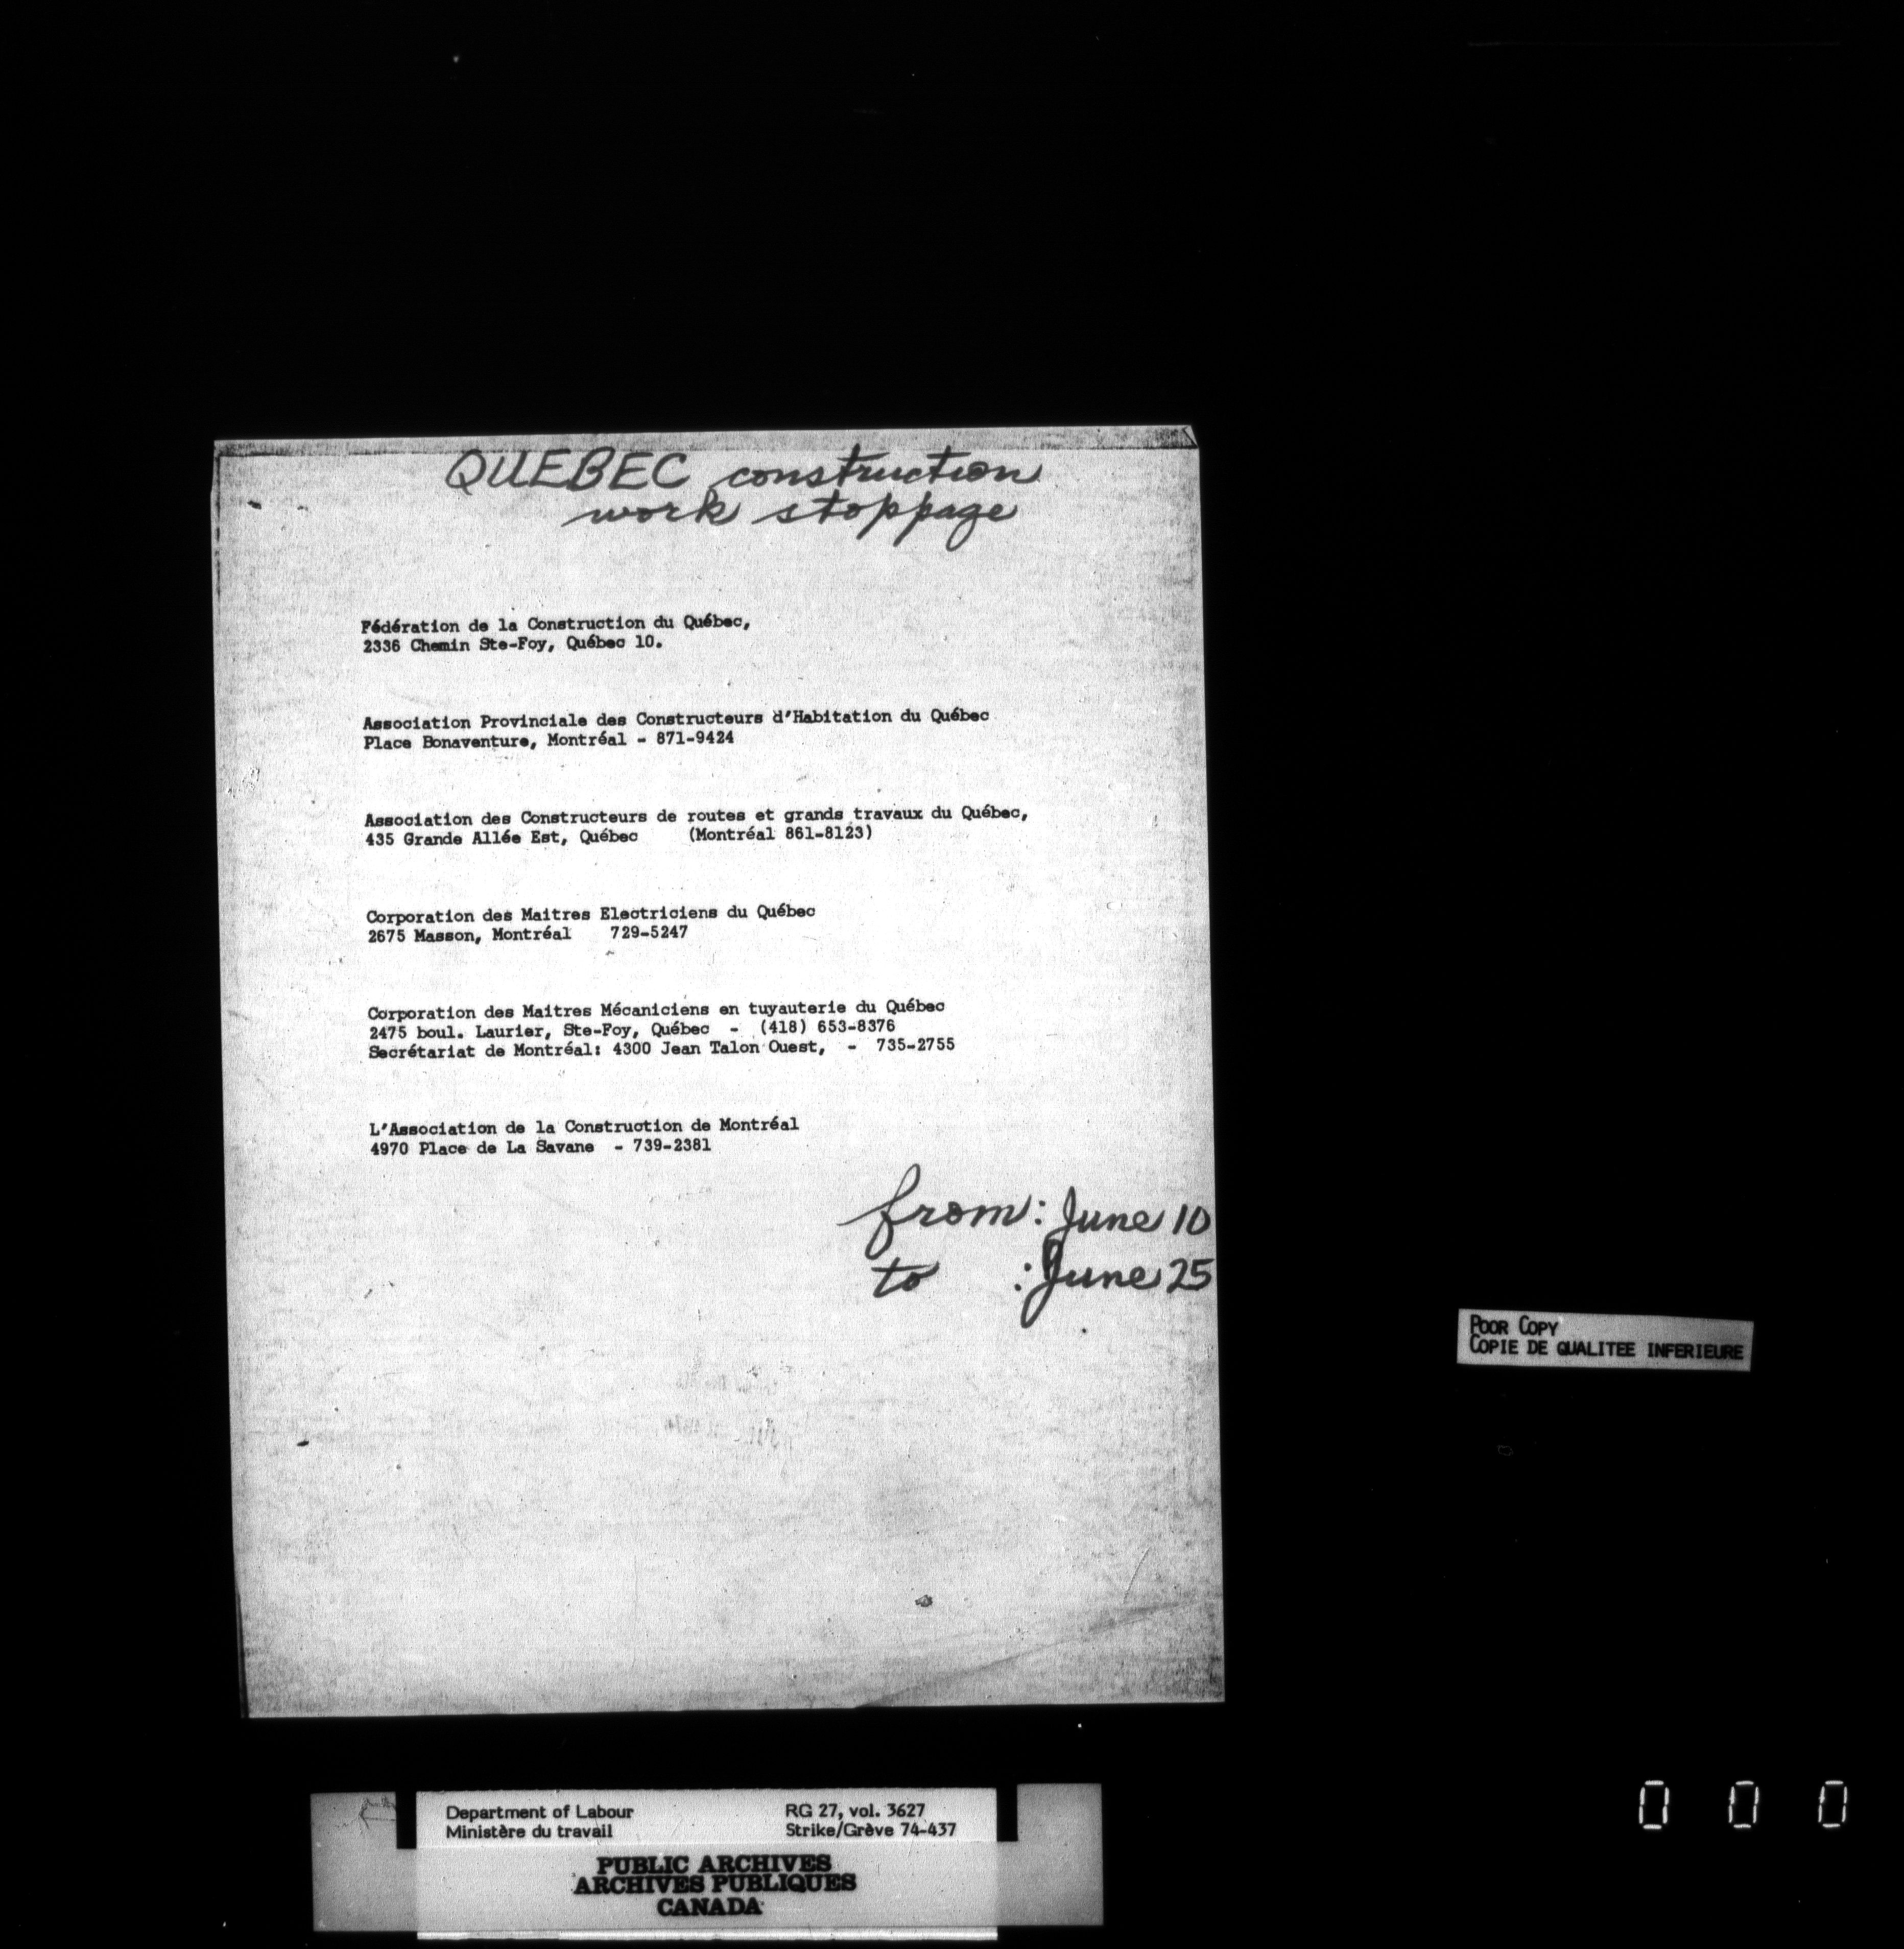 QUEBEC construction
work stoppage
Fédération de la Construction du Québec,
2336 Chemin Ste-Foy, Québec 10.
Association Provinciale des Constructeurs d'Habitation du Québec
Place Bonaventure, Montréal - 871-9424
Association des Constructeurs de routes et grands travaux du Québec,
435 Grande Allée Est, Québec (Montréal 861-8123)
Corporation des Maitres Electriciens du Québec
2675 Masson, Montréal 729-5247
Corporation des Maitres Mécaniciens en tuyauterie du Québec
2475 boul. Laurier, Ste-Foy, Québec - (418) 653-8376
Secrétariat de Montréal: 4300 Jean Talon Ouest, - 735-2755
L'Association de la Construction de Montréal
4970 Place de La Savane - 739-2381
from: June 10
to : June 25
POOR COPY
COPIE DE QUALITEE INFERIEURE
Department of Labour
Ministère du travail
RG 27, vol. 3627
Strike/Grève 74-437
PUBLIC ARCHIVES
ARCHIVES PUBLIQUES
CANADA
0 0 0